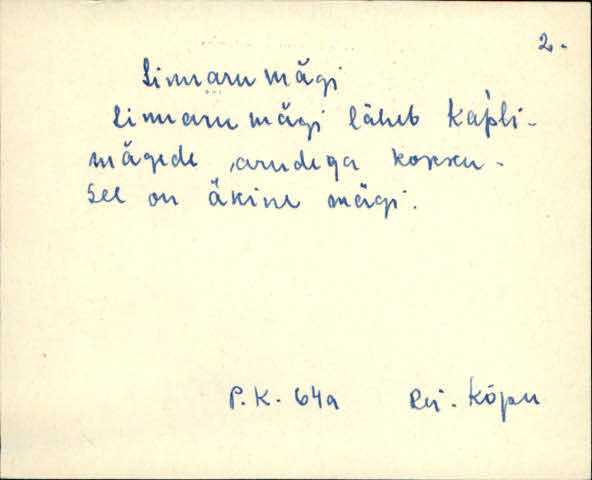 2.
Linnaru mägi
Linnaru mägi läheb Kap̀li-
mägede arudega kokku.
See on äkine mägi.
P.K. 64a Rei. Kõpu